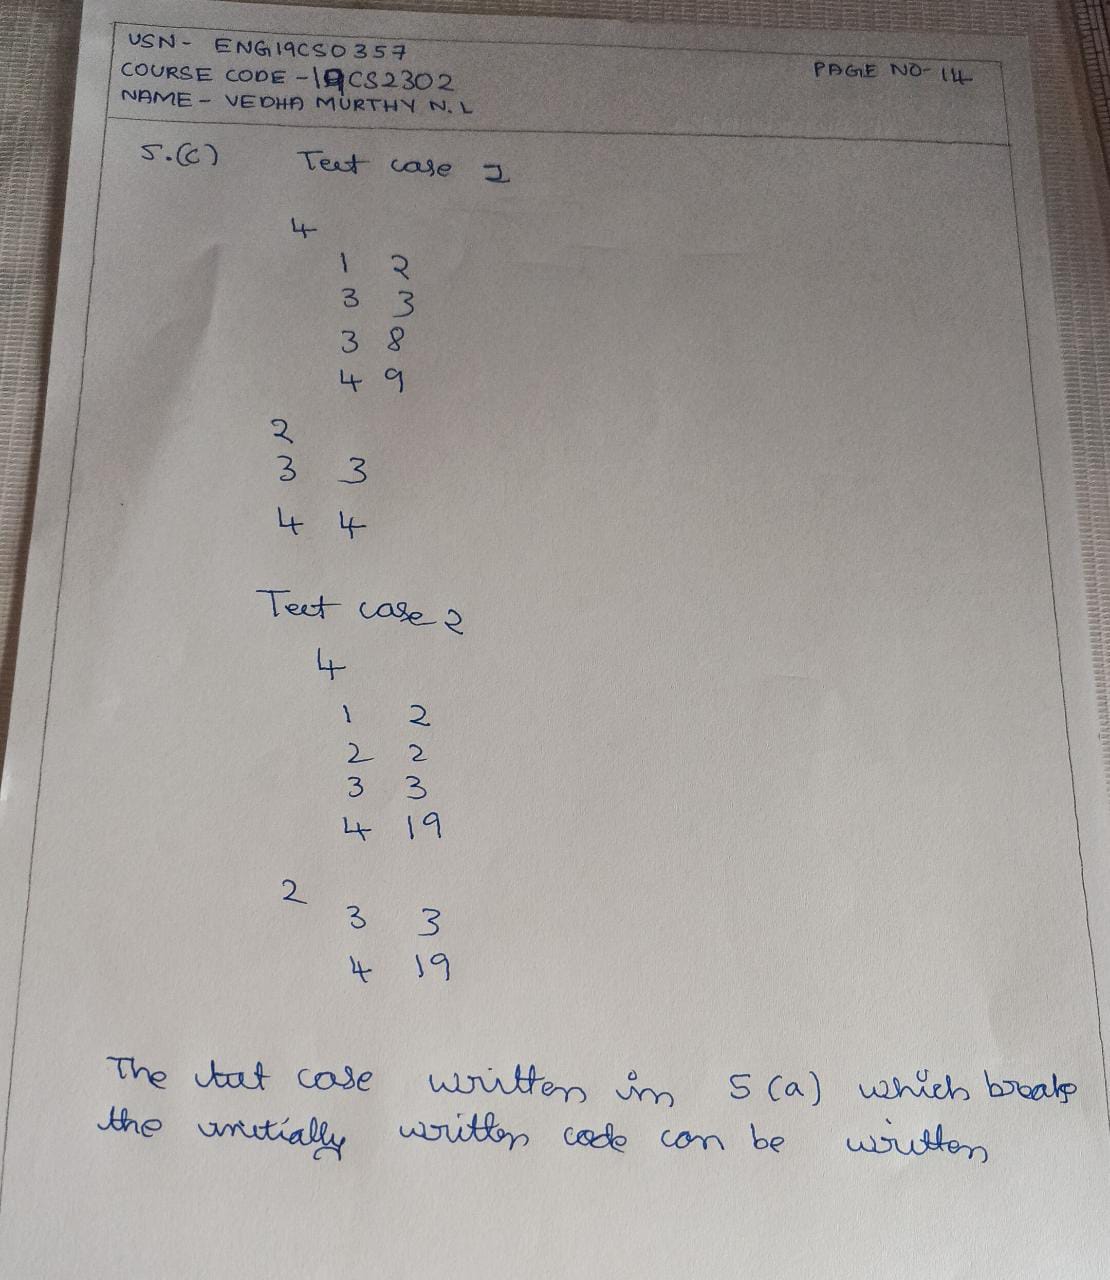 USN - ENG19CS0357
COURSE CODE - 19CS2302
NAME - VEDHA MURTHY N.L
PAGE NO- 14
5.(C) Test case 1
4
1 2
3 3
3 8
4 9
2
3 3
4 4
Test case 2
4
1 2
2 2
3 3
4 19
2
3 3
4 19
The test case written in 5(a) which breaks
the initially written code can be written